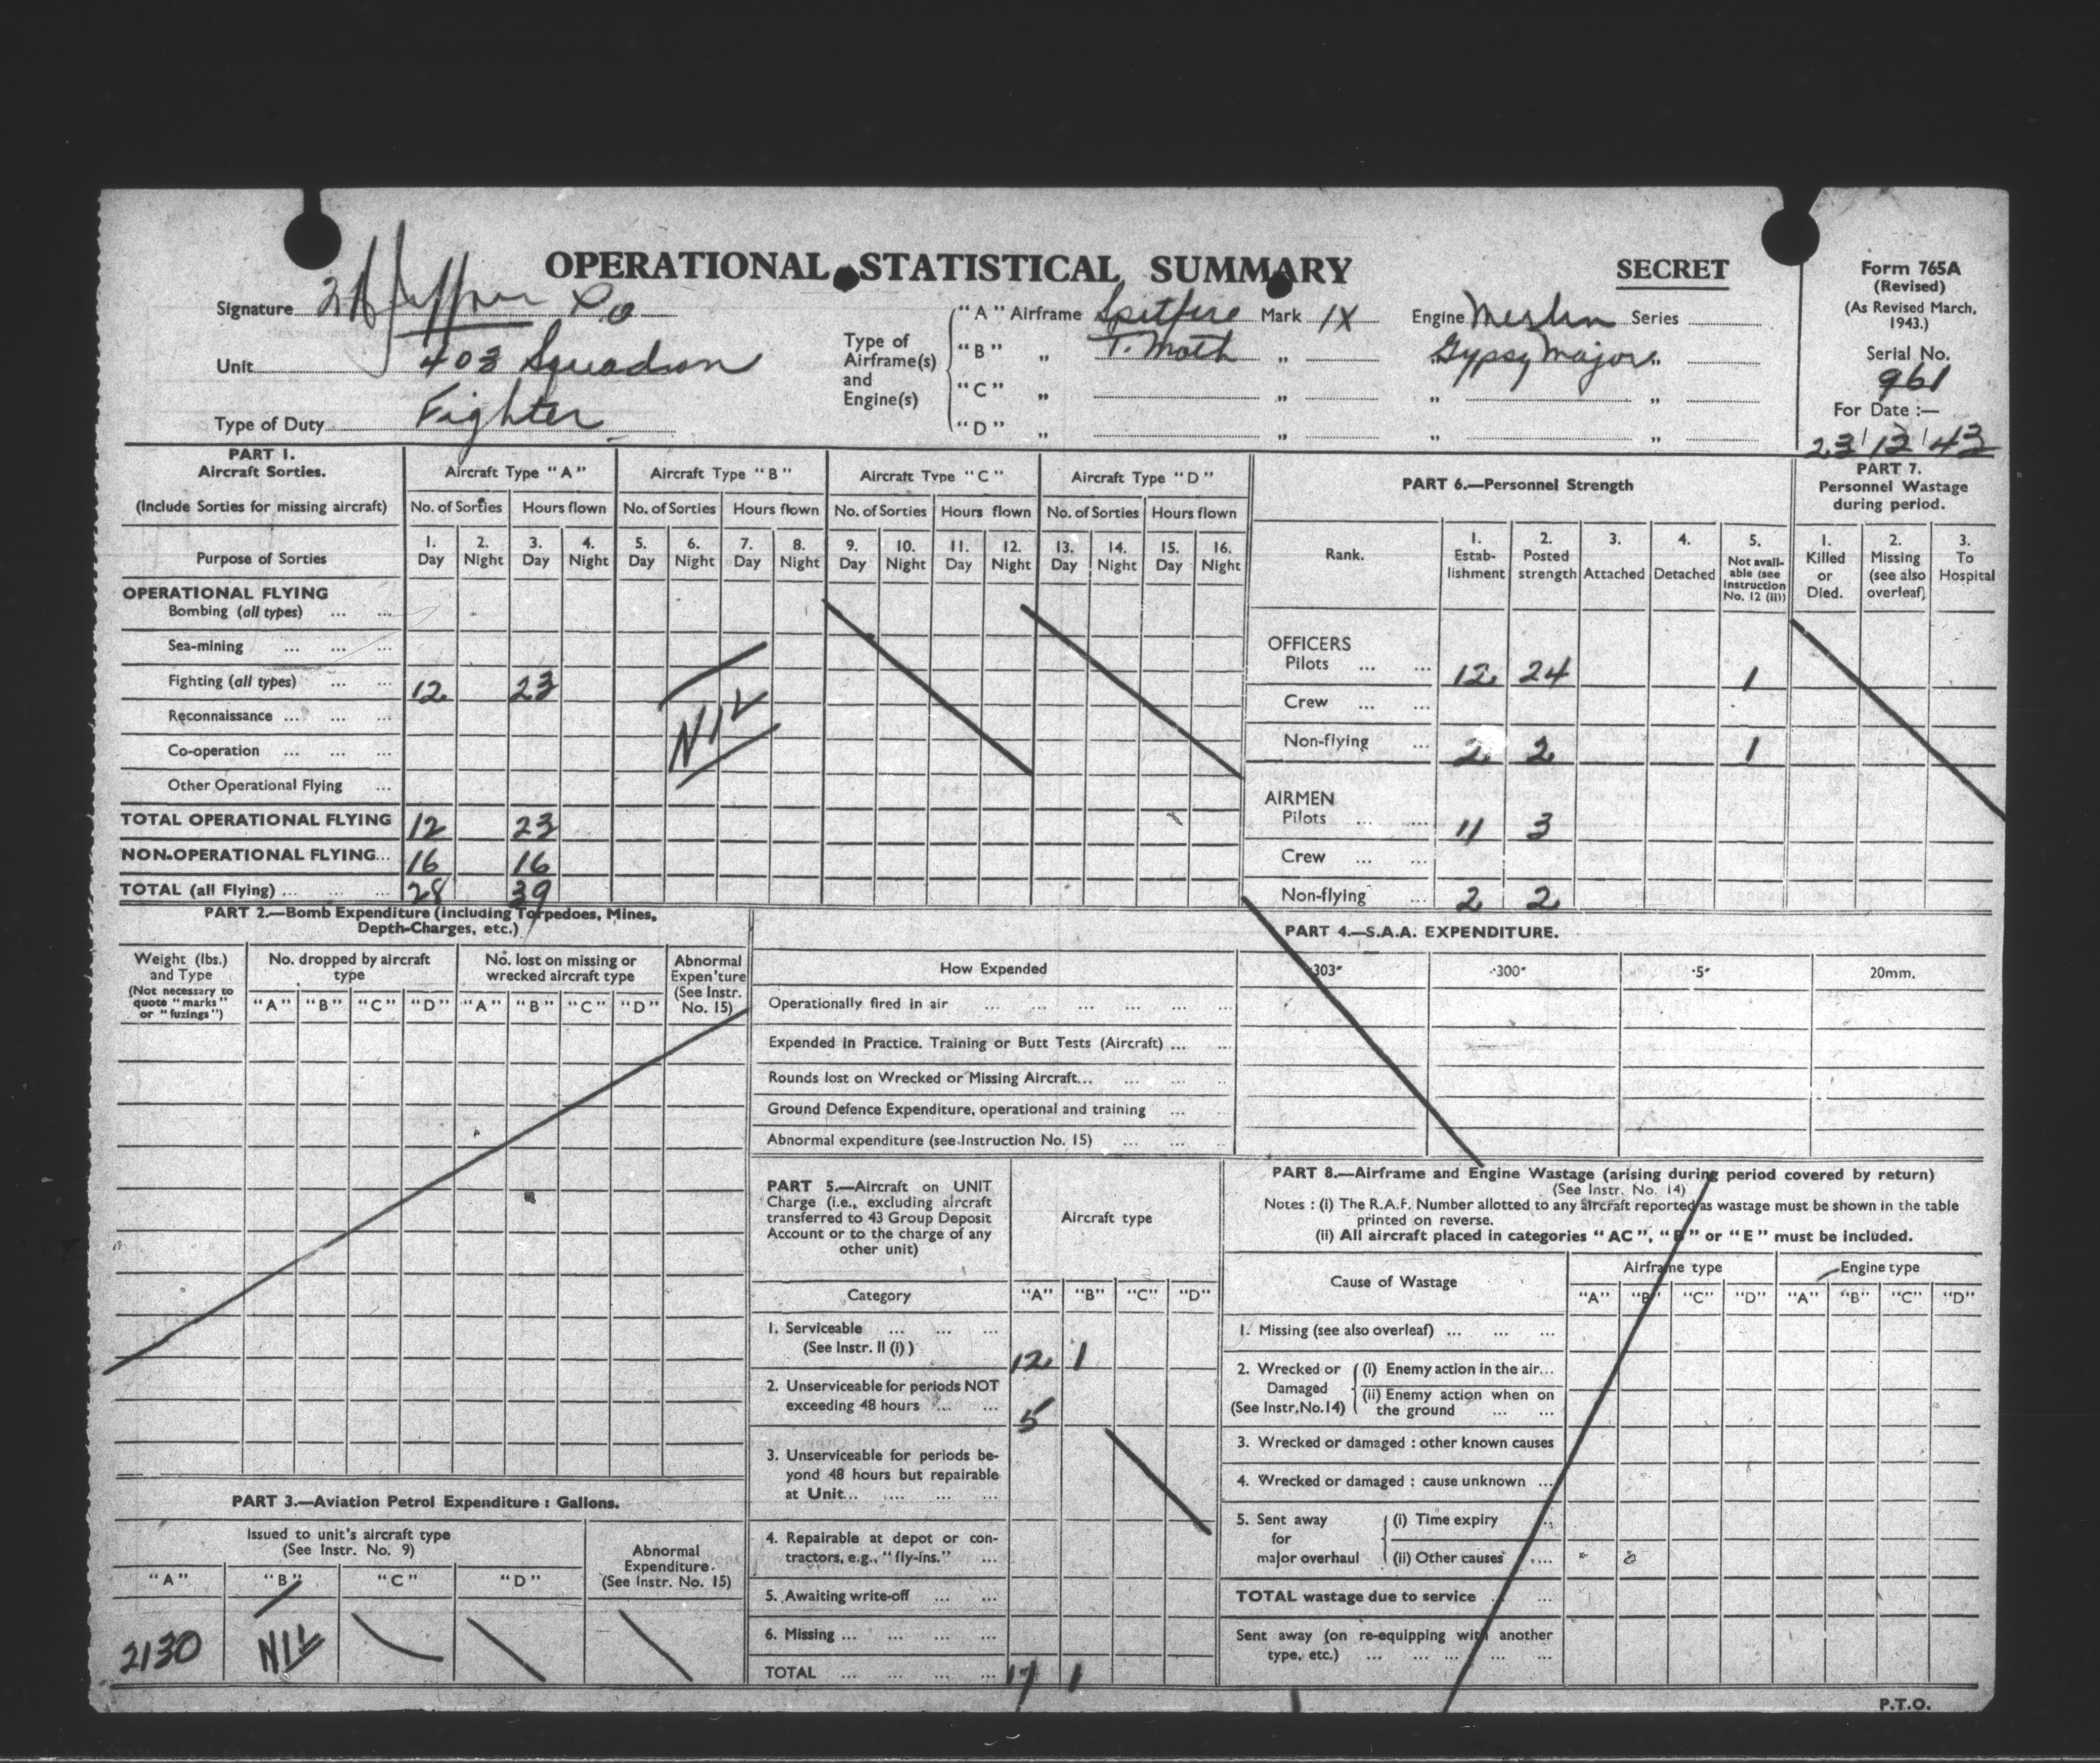 OPERATIONAL STATISTICAL SUMMARY
SECRET
Form 765A
(Revised)
(As Revised March,
1943.)
Serial No.
961
For Date :—
23/12/43
Signature
Unit 403 Squadron
Type of Duty Fighter
Type of
Airframe(s)
and
Engine(s)
"A" Airframe Spitfire Mark IX Engine Merlin Series
"B" „ T. Moth „ Gypsy Major „
"C" „ „ „ „
"D" „ „ „ „
PART 1.
Aircraft Sorties.
(Include Sorties for missing aircraft)
Purpose of Sorties
Aircraft Type "A" Aircraft Type "B" Aircraft Type "C" Aircraft Type "D"
No. of Sorties Hours flown No. of Sorties Hours flown No. of Sorties Hours flown No. of Sorties Hours flown
1. 2. 3. 4. 5. 6. 7. 8. 9. 10. 11. 12. 13. 14. 15. 16.
Day Night Day Night Day Night Day Night Day Night Day Night Day Night Day Night
OPERATIONAL FLYING
Bombing (all types) ... ...
Sea-mining ... ... ...
Fighting (all types) ... ... 12 23
Reconnaissance ... ... ...
NIL
Co-operation ... ... ...
Other Operational Flying ...
TOTAL OPERATIONAL FLYING 12 23
NON-OPERATIONAL FLYING... 16 16
TOTAL (all Flying) ... ... ... 28 39
PART 6.—Personnel Strength
Rank.
1. Estab-
lishment
2. Posted
strength
3. Attached
4. Detached
5. Not avail-
able (see
Instruction
No. 12 (ii))
OFFICERS
Pilots ... ... 12 24 1
Crew ... ...
Non-flying ... 2 2 1
AIRMEN
Pilots ... ... 11 3
Crew ... ...
Non-flying ... 2 2
PART 7.
Personnel Wastage
during period.
1. Killed
or
Died.
2. Missing
(see also
overleaf)
3. To
Hospital
PART 2.—Bomb Expenditure (including Torpedoes, Mines,
Depth-Charges, etc.)
Weight (lbs.)
and Type
(Not necessary to
quote "marks"
or "fuzings")
No. dropped by aircraft
type
No. lost on missing or
wrecked aircraft type
Abnormal
Expen'ture
(See Instr.
No. 15)
"A" "B" "C" "D" "A" "B" "C" "D"
PART 4.—S.A.A. EXPENDITURE.
How Expended ·303" ·300" ·5" 20mm.
Operationally fired in air ... ... ... ... ... ...
Expended in Practice. Training or Butt Tests (Aircraft) ... ...
Rounds lost on Wrecked or Missing Aircraft... ... ... ...
Ground Defence Expenditure, operational and training ... ...
Abnormal expenditure (see Instruction No. 15) ... ... ...
PART 3.—Aviation Petrol Expenditure : Gallons.
Issued to unit's aircraft type
(See Instr. No. 9)
Abnormal
Expenditure.
(See Instr. No. 15)
"A" "B" "C" "D"
2130 NIL
PART 5.—Aircraft on UNIT
Charge (i.e., excluding aircraft
transferred to 43 Group Deposit
Account or to the charge of any
other unit)
Aircraft type
Category "A" "B" "C" "D"
1. Serviceable ... ... ...
(See Instr. II (i) ) 12 1
2. Unserviceable for periods NOT
exceeding 48 hours ... ... 5
3. Unserviceable for periods be-
yond 48 hours but repairable
at Unit... .... ... ...
4. Repairable at depot or con-
tractors, e.g., "fly-ins." ...
5. Awaiting write-off ... ...
6. Missing ... ... ... ...
TOTAL ... ... ... ... 17 1
PART 8.—Airframe and Engine Wastage (arising during period covered by return)
(See Instr. No. 14)
Notes : (i) The R.A.F. Number allotted to any aircraft reported as wastage must be shown in the table
printed on reverse.
(ii) All aircraft placed in categories "AC", "B" or "E" must be included.
Cause of Wastage
Airframe type Engine type
"A" "B" "C" "D" "A" "B" "C" "D"
1. Missing (see also overleaf) ... ... ...
2. Wrecked or
Damaged
(See Instr. No.14)
(i) Enemy action in the air...
(ii) Enemy action when on
the ground ... ...
3. Wrecked or damaged : other known causes
4. Wrecked or damaged : cause unknown ...
5. Sent away
for
major overhaul
(i) Time expiry ..
(ii) Other causes ....
TOTAL wastage due to service ... ...
Sent away (on re-equipping with another
type, etc.) ... ... ... ... ...
P.T.O.